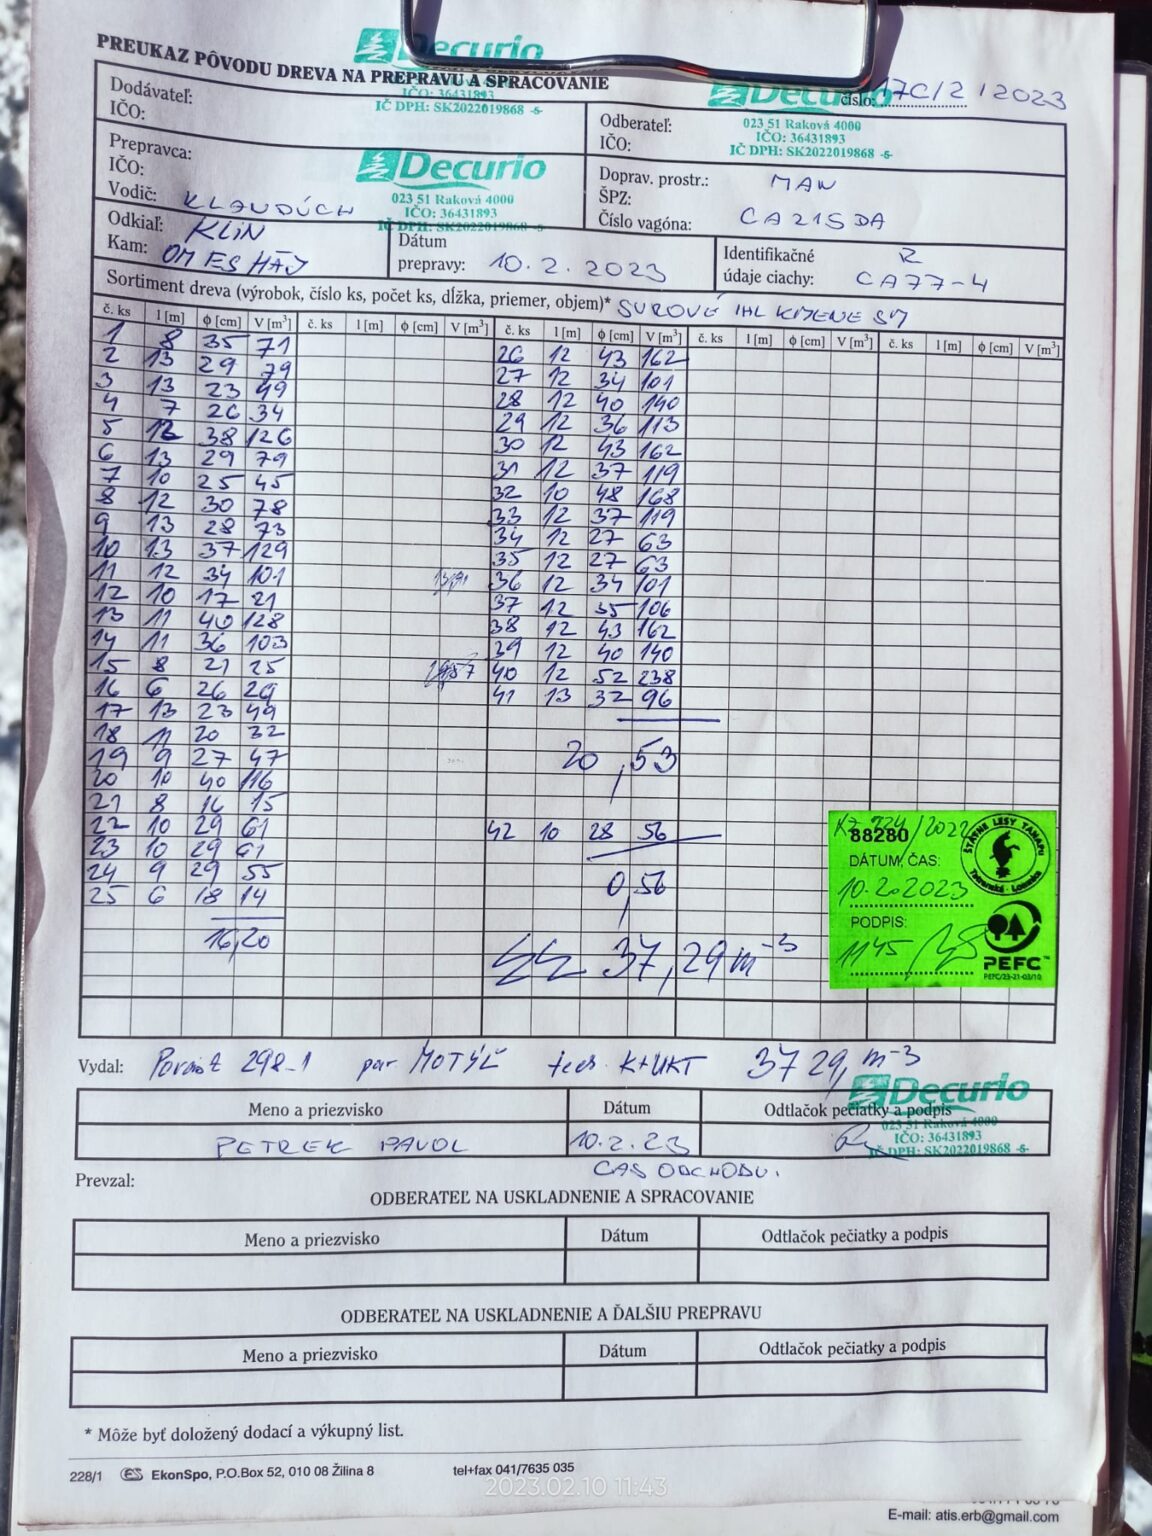 PREUKAZ PÔVODU DREVA NA PREPRAVU A SPRACOVANIE
Decurio
IČO: 36431893
IČ DPH: SK2022019868 -5-
Dodávateľ:
IČO:
číslo: 17C/2/2023
Decurio
023 51 Raková 4000
IČO: 36431893
IČ DPH: SK2022019868 -5-
Odberateľ:
IČO:
Prepravca:
IČO:
Vodič: KLAUDÚCH
Decurio
023 51 Raková 4000
IČO: 36431893
IČ DPH: SK2022019868 -5-
Doprav. prostr.: MAN
ŠPZ:
Číslo vagóna: CA215DA
Odkiaľ: KLIN
Kam: OM ES HÁJ
Dátum
prepravy: 10.2.2023
Identifikačné R
údaje ciachy: CA77-4
Sortiment dreva (výrobok, číslo ks, počet ks, dĺžka, priemer, objem)* SUROVÉ IHL KMENE SM
č. ks l [m] ϕ [cm] V [m³] č. ks l [m] ϕ [cm] V [m³] č. ks l [m] ϕ [cm] V [m³] č. ks l [m] ϕ [cm] V [m³] č. ks l [m] ϕ [cm] V [m³]
1 8 35 71
2 13 29 79
3 13 23 49
4 7 26 34
5 12 38 126
6 13 29 79
7 10 25 45
8 12 30 78
9 13 28 73
10 13 37 129
11 12 34 101
12 10 17 21
13 11 40 128
14 11 36 103
15 8 21 25
16 6 26 29
17 13 23 49
18 11 20 32
19 9 27 47
20 10 40 116
21 8 16 15
22 10 29 61
23 10 29 61
24 9 29 55
25 6 18 14
16,20
26 12 43 162
27 12 34 101
28 12 40 140
29 12 36 113
30 12 43 162
31 12 37 119
32 10 48 168
33 12 37 119
34 12 27 63
35 12 27 63
36 12 34 101
37 12 35 106
38 12 43 162
39 12 40 140
40 12 52 238
41 13 32 96
20,53
42 10 28 56
0,56
37,29 m-3
88280
DÁTUM, ČAS:
10.2.2023
PODPIS:
1145
ŠTÁTNE LESY TANAPU
Tatranská Lomnica
PEFC™
PEFC/23-21-03/10
Vydal: Porast 298-1 par MOTÝĽ tech. K+UKT 37 29, m-3
Decurio
023 51 Raková 4000
IČO: 36431893
IČ DPH: SK2022019868 -5-
Meno a priezvisko Dátum Odtlačok pečiatky a podpis
PETREK PAVOL 10.2.23
ČAS ODCHODU.
Prevzal:
ODBERATEĽ NA USKLADNENIE A SPRACOVANIE
Meno a priezvisko Dátum Odtlačok pečiatky a podpis
ODBERATEĽ NA USKLADNENIE A ĎALŠIU PREPRAVU
Meno a priezvisko Dátum Odtlačok pečiatky a podpis
* Môže byť doložený dodací a výkupný list.
228/1 ES EkonSpo, P.O.Box 52, 010 08 Žilina 8 tel+fax 041/7635 035
2023.02.10 11:43
E-mail: atis.erb@gmail.com